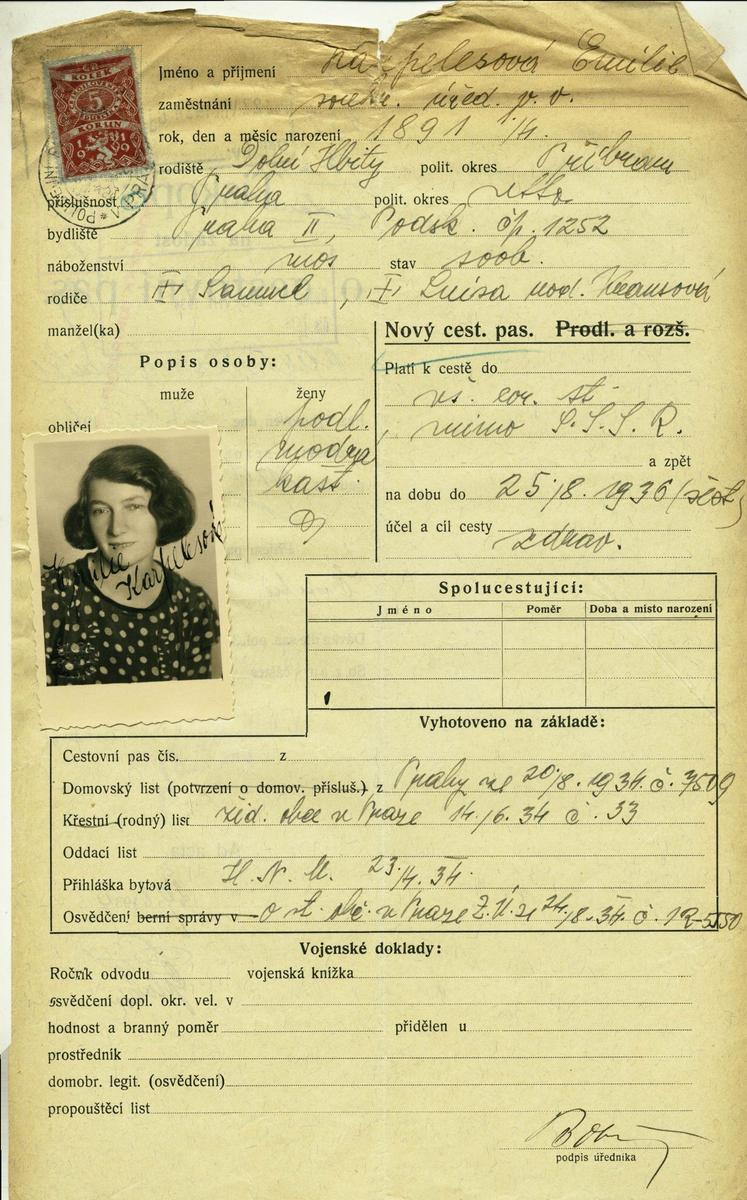 KOLEK
ČESKOSLOVENSKÝ
5
KORUN
19 19
Jméno a příjmení Karpelesová Emilie
zaměstnání soukr. úřed. v. v.
rok, den a měsíc narození 1891 1/4.
rodiště Dolní Hbity polit. okres Příbram
příslušnost Praha polit. okres
bydliště Praha II, Podsk. čp. 1252
náboženství mos stav svob.
rodiče Samuel, Luisa roz.
manžel(ka)
Nový cest. pas. Prodl. a rozš.
Popis osoby:
muže ženy
Platí k cestě do vš. evr. st.
mimo S. S. S. R.
a zpět
obličej podl.
modra
kašt.
na dobu do 25./8. 1936
účel a cíl cesty zdrav.
Emilie Karpelesová
Spolucestující:
Jméno Poměr Doba a místo narození
Vyhotoveno na základě:
Cestovní pas čís. z
Domovský list (potvrzení o domov. přísluš.) z Prahy ze 20./8. 1934 č. 7509
Křestní (rodný) list žid. obce v Praze 14./6. 34 č. 33
Oddací list
Přihláška bytová H. N. M. 23./4. 34.
Osvědčení berní správy v o st. obč. v Praze Z. Ú. 24./8. 34. č.
Vojenské doklady:
Ročník odvodu vojenská knížka
osvědčení dopl. okr. vel. v
hodnost a branný poměr přidělen u
prostředník
domobr. legit. (osvědčení)
propouštěcí list
podpis úředníka